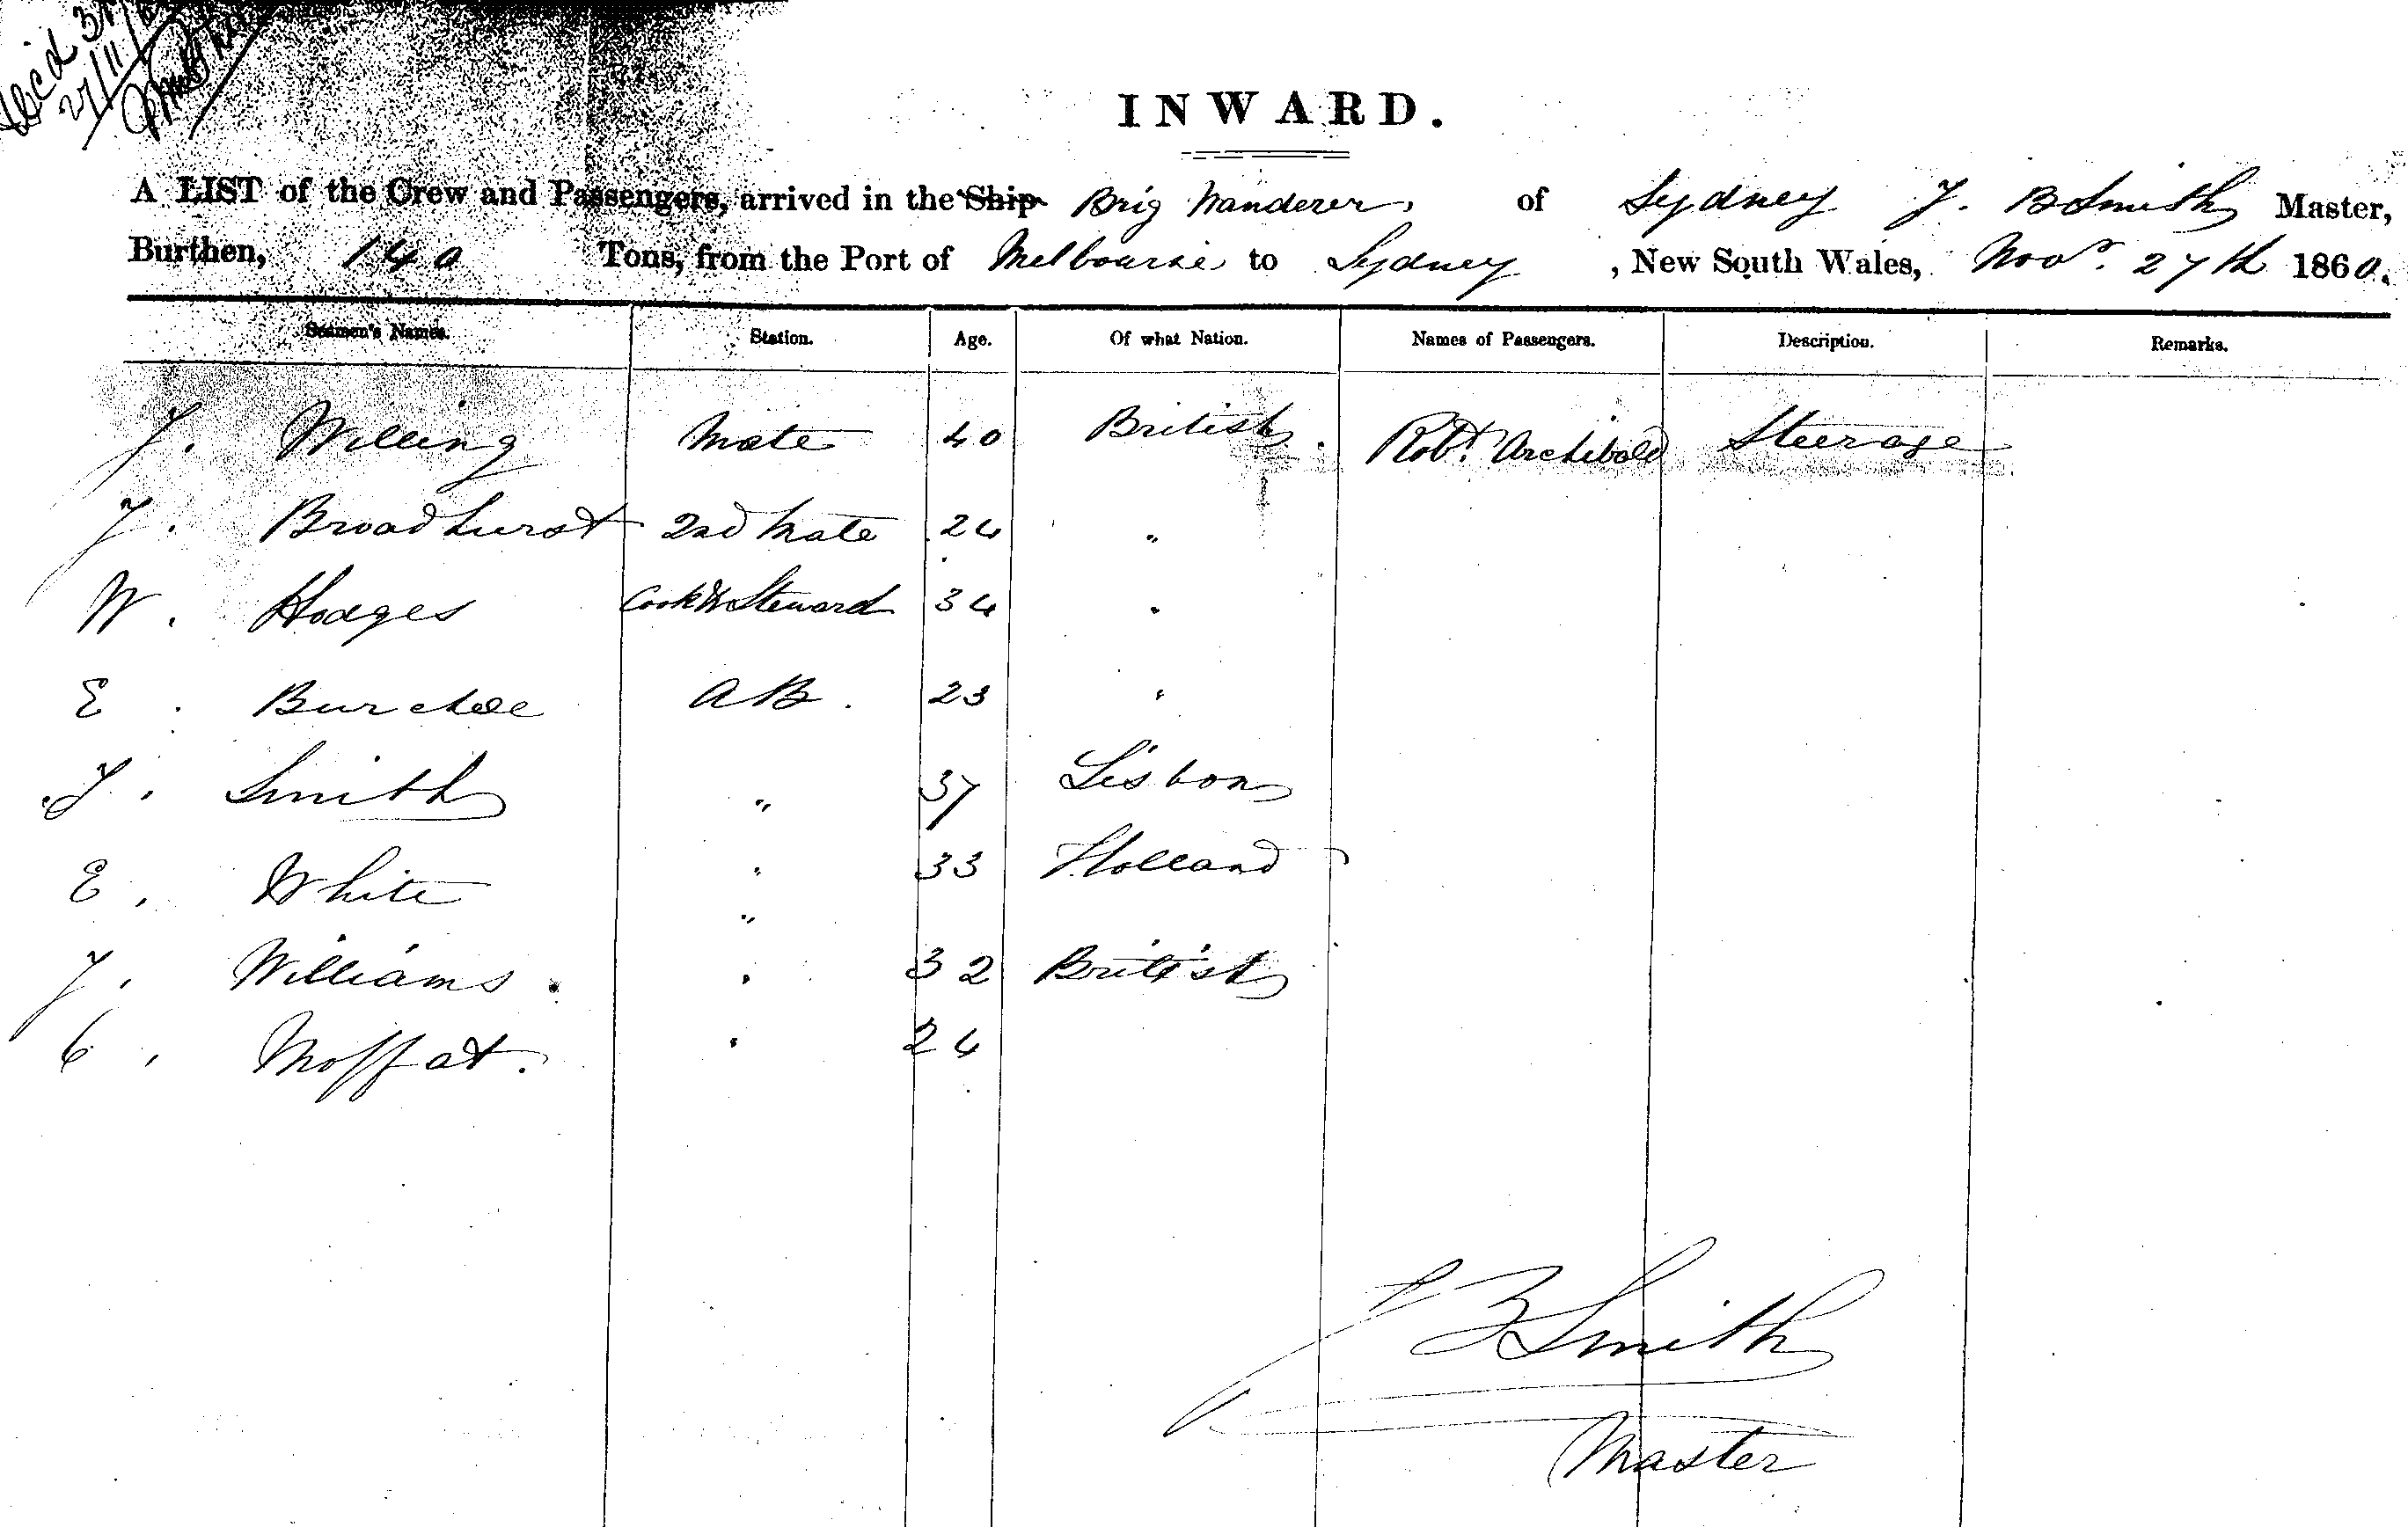 27/11/
INWARD.
A LIST of the Crew and Passengers, arrived in the Ship Brig Wanderer, of Sydney J. B Smith Master,
Burthen, 140 Tons, from the Port of Melbourne to Sydney, New South Wales, Novr. 27th 1860.
Seamen's Names. Station. Age. Of what Nation. Names of Passengers. Description. Remarks.
J. Willing Mate 40 British. Robt. Archibold Steerage
J. Broadhurst 2nd Mate 24 "
W. Hodges Cook & Steward 34 "
E. Burchell AB. 23 "
J. Smith " 37 Lisbon
E. White " 33 Holland
J. Williams " 32 British
C. Moffat. " 24
J B Smith
Master